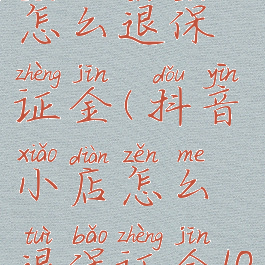 怎么退保
zhèng jīn dǒu yīn
证金(抖音
xiǎo diàn zěn me
小店怎么
tuì bǎo zhèng jīn
退保证金10